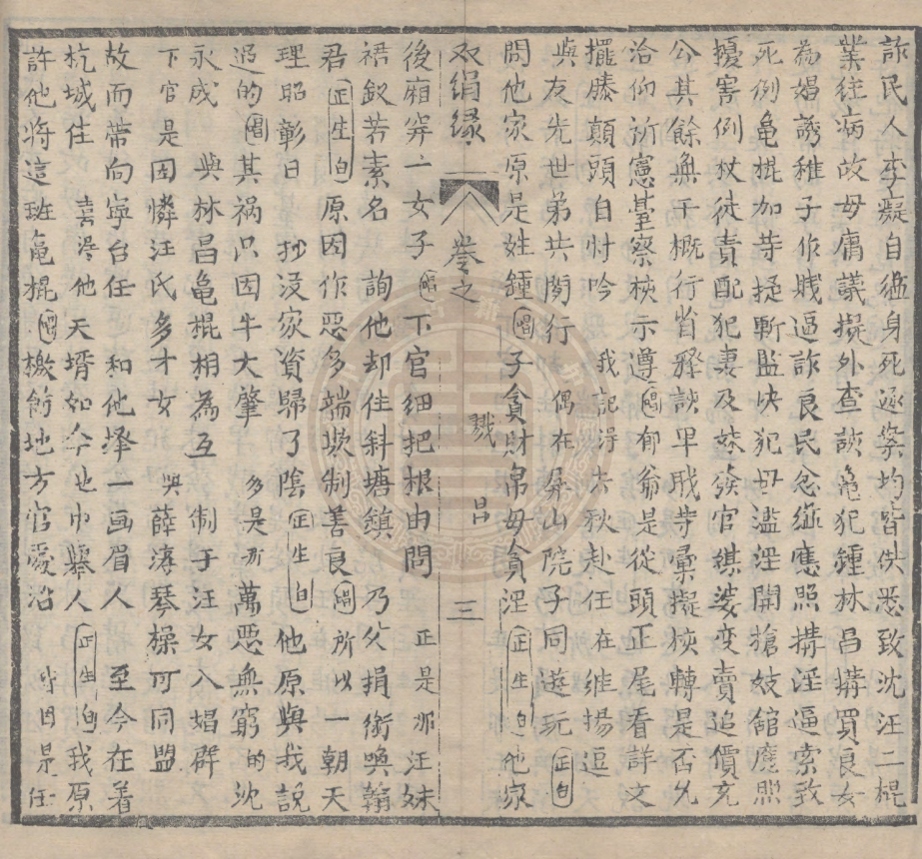 詐民人李癡自縊身死逐案均皆供悉致沈汪二棍
業徃病故毋庸議擬外查該龟犯鍾林昌搆買良女
為娼誘稚子作賎逼詐良民忿縊應照搆淫逼索致
死例龟棍加等擬斬监决犯母濫淫開搶妓舘應照
擾害例杖徒責配犯妻及妹發官媒婆变賣追價充
公其餘無干概行省釋該卑职等彙擬校轉是否允
洽仰祈憲臺察核示遵唱郁爺是從頭正尾看詳文
擺滕顛頭自忖吟 我記得去秋赴任在維揚逗
與友先世弟共閑行 偶在屏山院子同遊玩正白
問他家原是姓鍾唱子貪財帛母貪淫正生白他家
双絹緣 卷之 戮昌 三
後廂穽一女子唱下官细把根由問 正是那汪妹
裙釵若素名 詢他却住斜塘鎮 乃父捐衔喚翰
君正生白原因作恶多端欺制善良唱所以一朝天
理昭彰日 抄没家資歸了陰正生白他原與我說
过的唱其祸只因牛大肇 多是那萬恶無窮的沈
永成 與林昌龟棍相為互 制于汪女入娼辟
下官是因憐汪氏多才女 與薛濤琴操可同盟
故而帶向寧台任 和他择一画眉人 至今在着
杭城住 喜得他天壻如今也巾舉人正生白我原
許他將這班龟棍唱檄飭地方官嚴治 時因是任